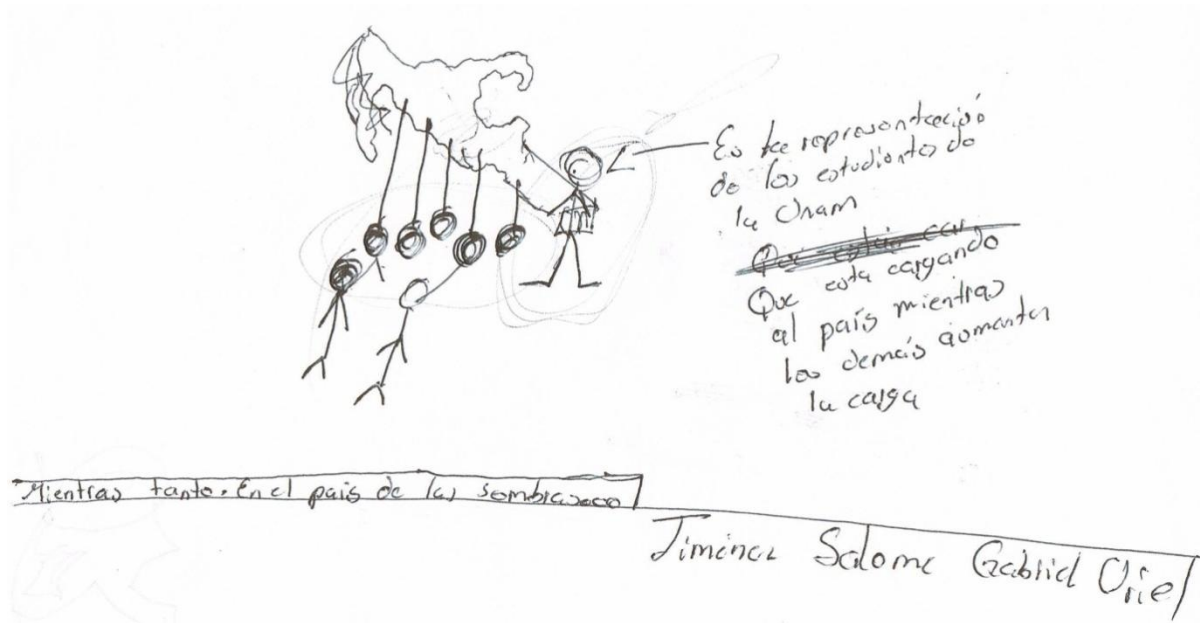 Es la representació
de los estudiantes de
la Unam
Que está cargando
al país mientras
los demás aumentan
la carga
Mientras tanto. En el país de las sombras...
Jiménez Salome Gabriel Uriel